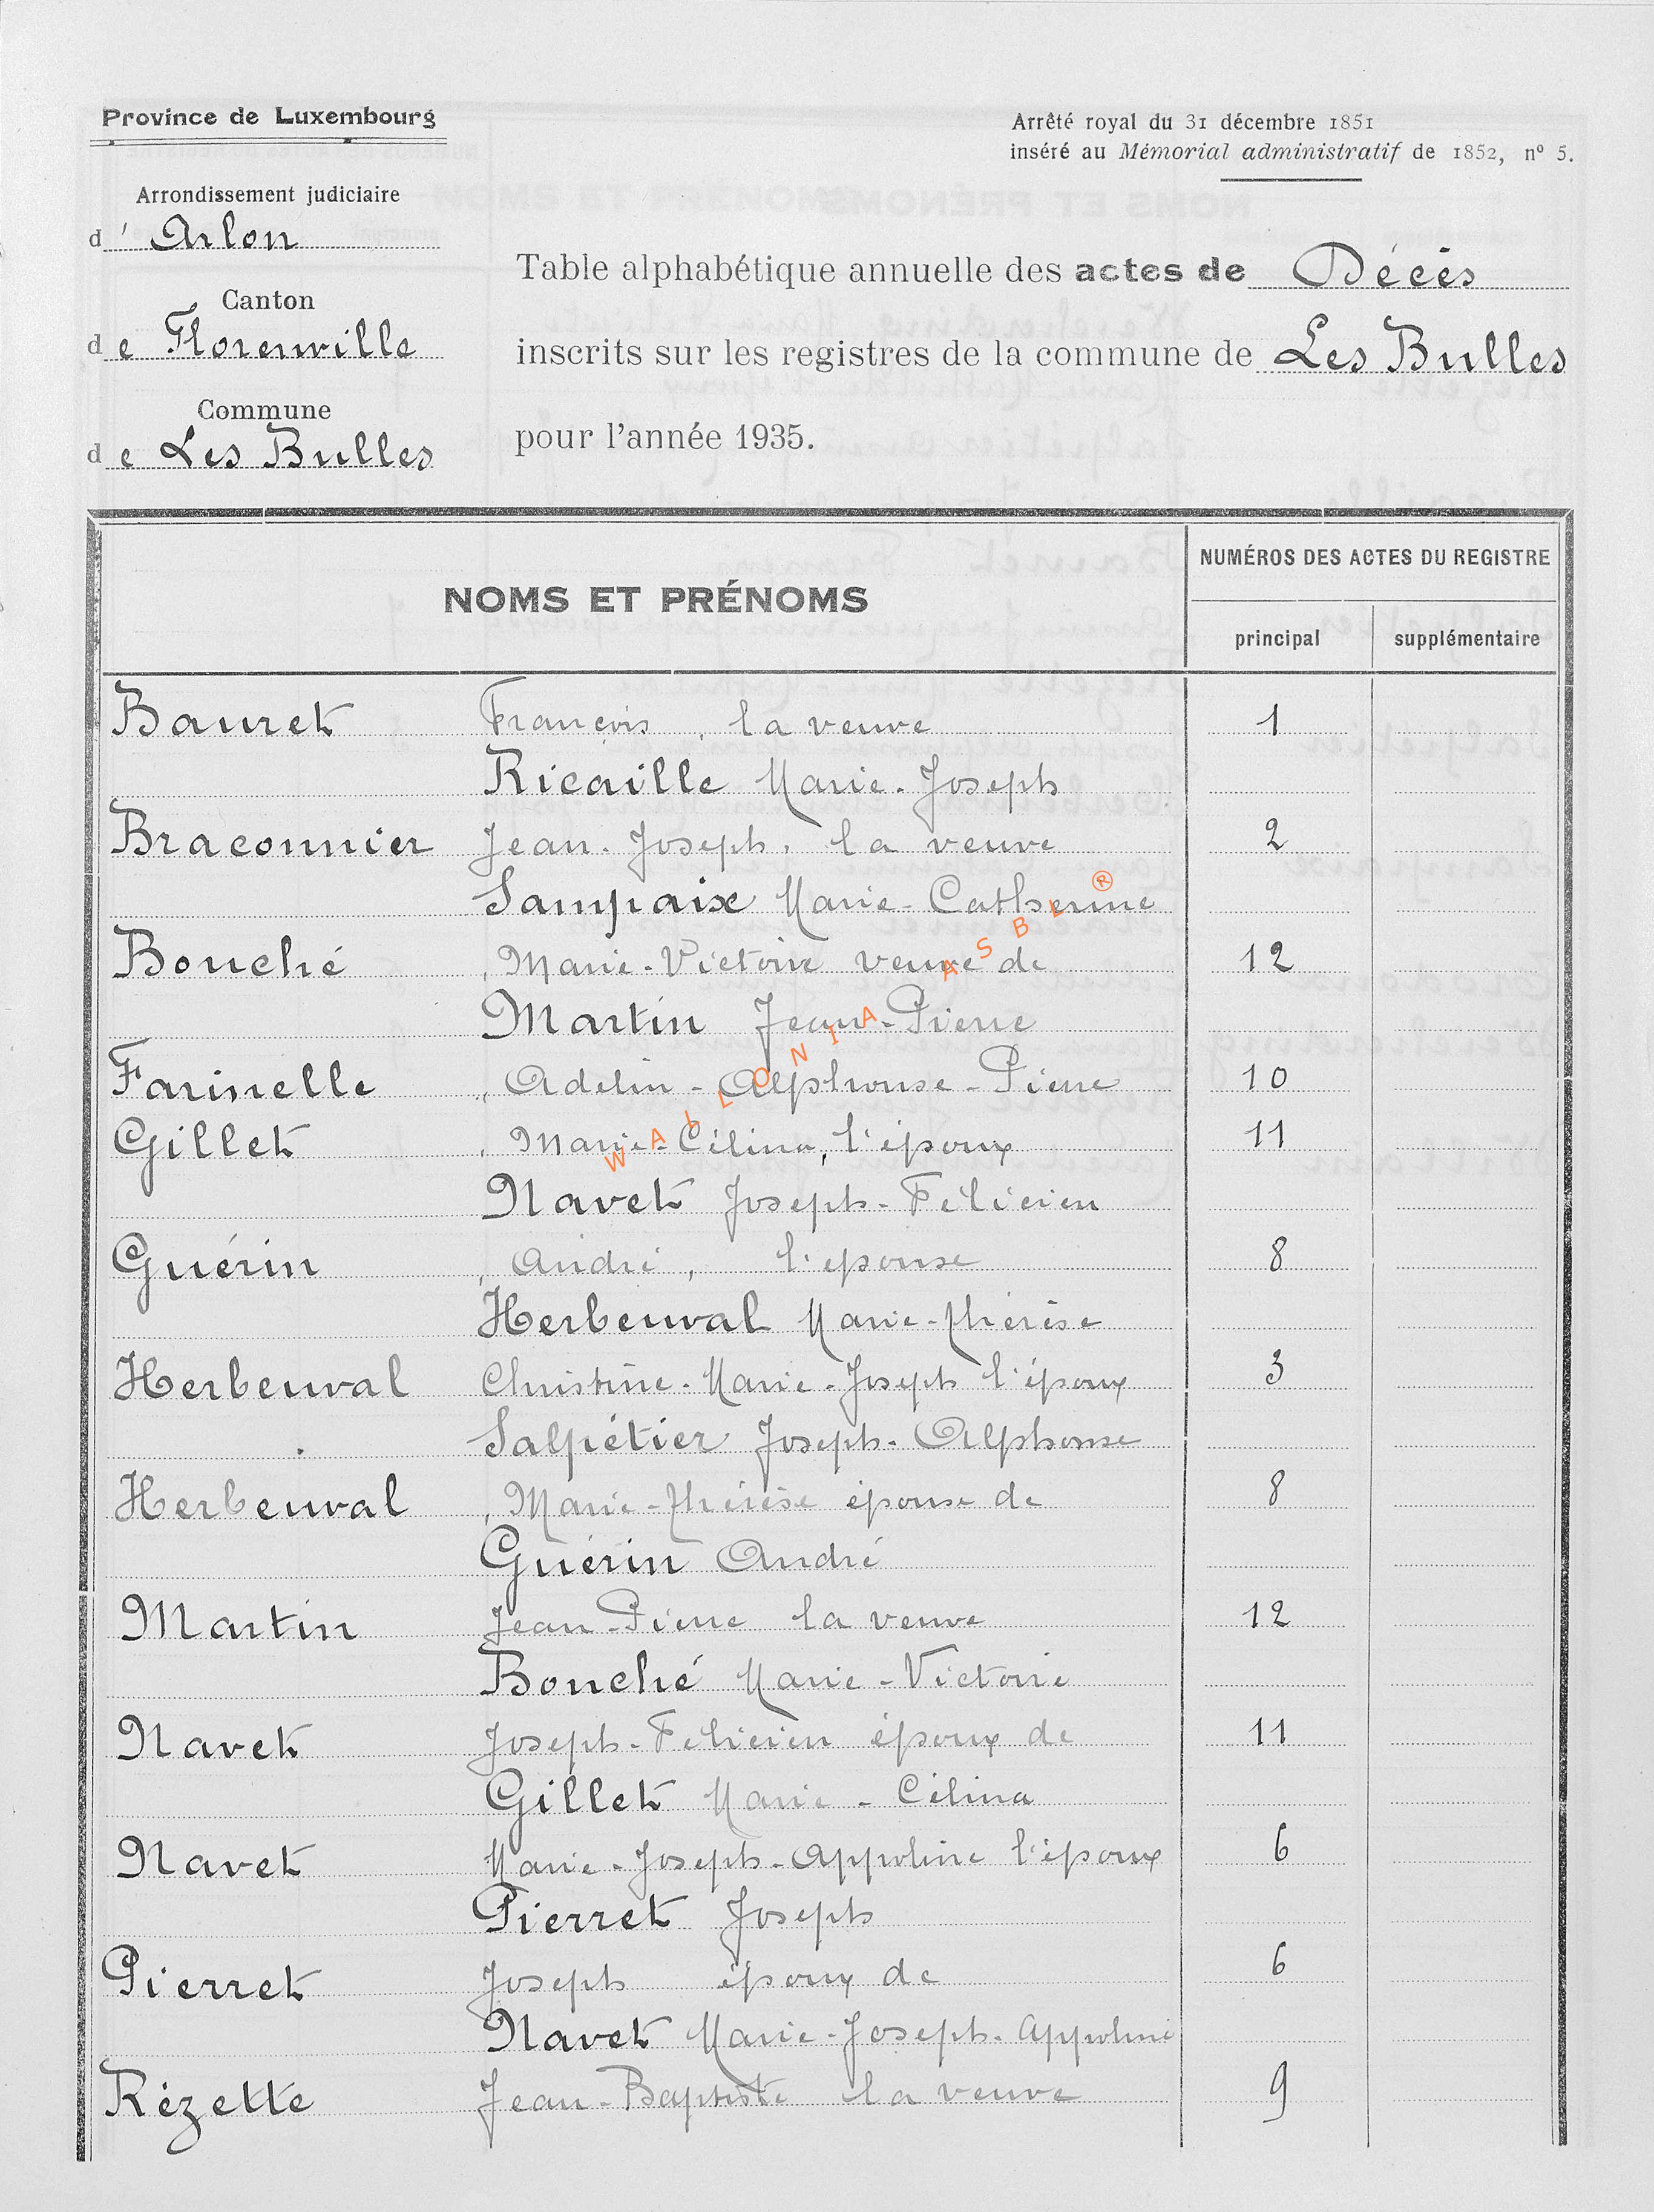 Province de Luxembourg
Arrêté royal du 31 décembre 1851
inséré au Mémorial administratif de 1852, nº 5.
Arrondissement judiciaire
d' Arlon
Canton
de Florenville
Commune
de Les Bulles
Table alphabétique annuelle des actes de Décès
inscrits sur les registres de la commune de Les Bulles
pour l'année 1935.
NOMS ET PRÉNOMS
NUMÉROS DES ACTES DU REGISTRE
principal supplémentaire
Bauret François, la veuve 1
Ricaille Marie-Joseph
Braconnier Jean-Joseph, la veuve 2
Sampaix Marie-Catherine
Bouché, Marie-Victoire veuve de 12
Martin Jean-Pierre
Farinelle, Adelin-Alphonse-Pierre 10
Gillet, Marie-Célina, l'époux 11
Navet Joseph-Félicien
Guérin, André, l'epouse 8
Herbeuval Marie-Thérèse
Herbeuval Christine-Marie-Joseph l'époux 3
Salpétier Joseph-Alphonse
Herbeuval, Marie-Thérèse épouse de 8
Guérin André
Martin Jean-Pierre la veuve 12
Bouché Marie-Victoire
Navet Joseph-Félicien époux de 11
Gillet Marie-Célina
Navet Marie-Joseph-Appoline l'époux 6
Pierret Joseph
Pierret Joseph époux de 6
Navet Marie-Joseph-Appoline
Rézette Jean-Baptiste la veuve 9
WALLONIA ASBL ®